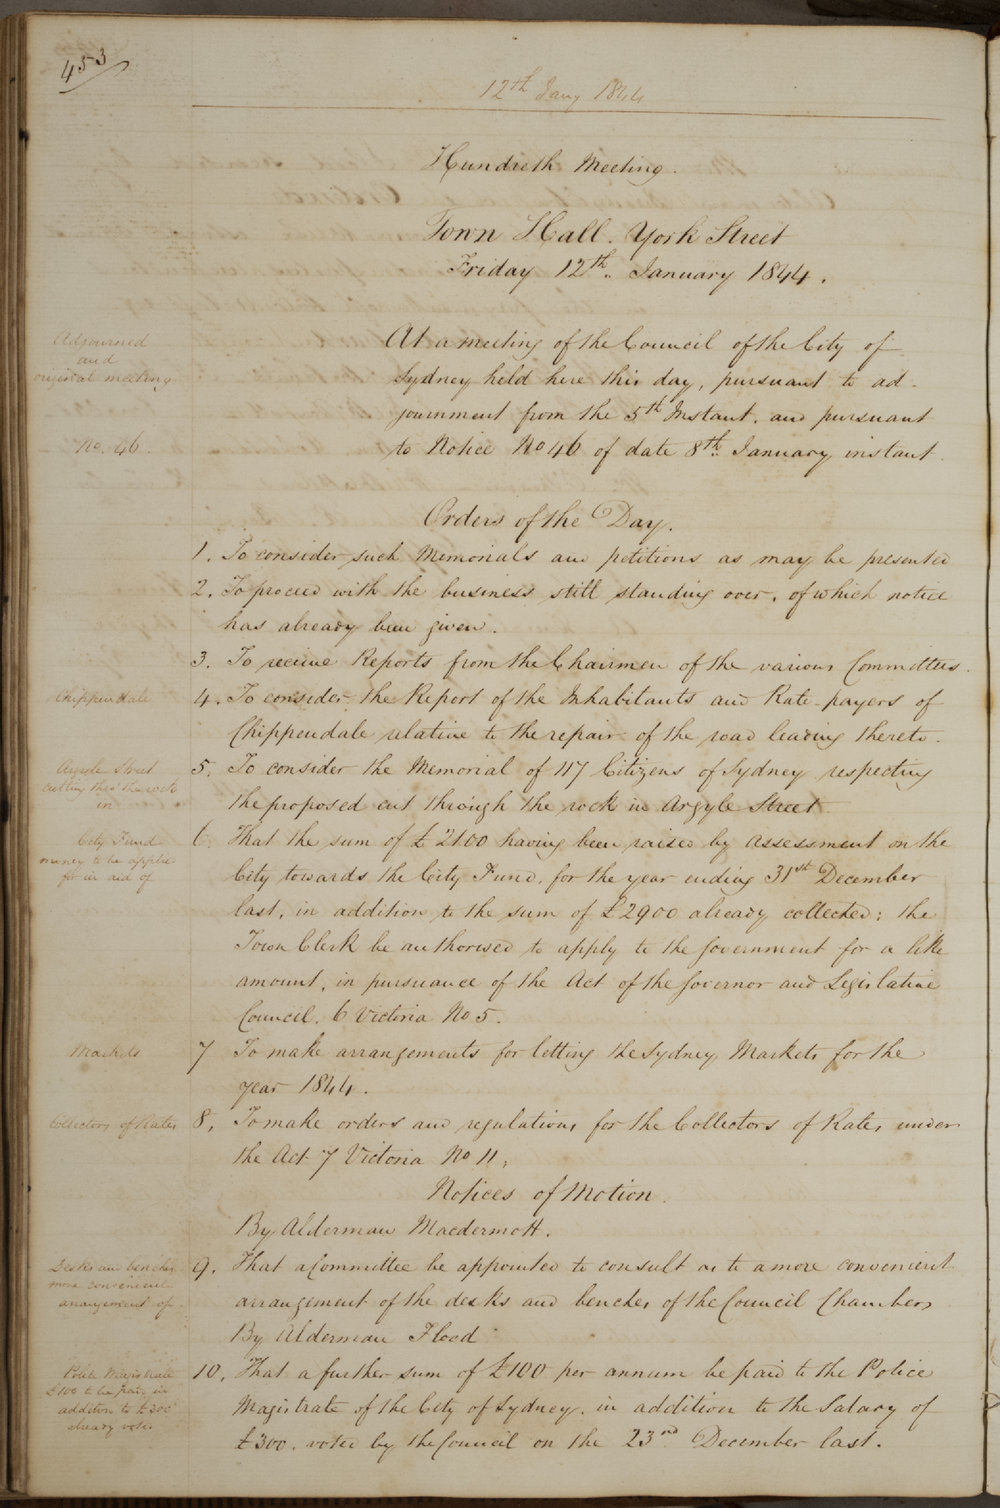 453
12th Jany 1844
Hundreth Meeting.
Town Hall. York Street
Friday 12th. January 1844.
Adjourned
and
original meeting
No. 46.
At a meeting of the Council of the City of
Sydney held here this day, pursuant to ad-
journment from the 5th Instant, and pursuant
to Notice No 46 of date 8th. January instant.
Orders of the Day.
1. To consider such Memorials and petitions as may be presented
2. To proceed with the business still standing over, of which notice
has already been given.
3. To receive Reports from the Chairmen of the various Committees.
Chippendale
4. To consider the Report of the Inhabitants and Rate-payers of
Chippendale relative to the repair of the road leading thereto.
Argyle Street
cutting thro' the rock
in
5. To consider the Memorial of 117 Citizens of Sydney respecting
the proposed cut through the rock in Argyle Street
City Fund
money to be applied
for in aid of
6. That the sum of £2100 having been raised by assessment on the
City towards the City Fund, for the year ending 31st December
last, in addition to the sum of £2900 already collected; the
Town Clerk be authorised to apply to the Government for a like
amount, in pursuance of the Act of the Governor and Legislative
Council. 6 Victoria No 5.
Markets
7 To make arrangements for letting the Sydney Markets for the
year 1844.
Collectors of Rates
8. To make orders and regulations for the Collectors of Rates under
the Act 7 Victoria No 11.
Notices of Motion.
By Alderman Macdermott.
Desks and benches
more convenient
arrangement of
9. That a Committee be appointed to consult as to a more convenient
arrangement of the desks and benches of the Council Chambers
By Alderman Flood
Police Magistrate
£100 to be paid in
addition to £300
already voted
10. That a further sum of £100 per annum be paid to the Police
Magistrate of the City of Sydney, in addition to the Salary of
£300, voted by the Council on the 23rd December last.